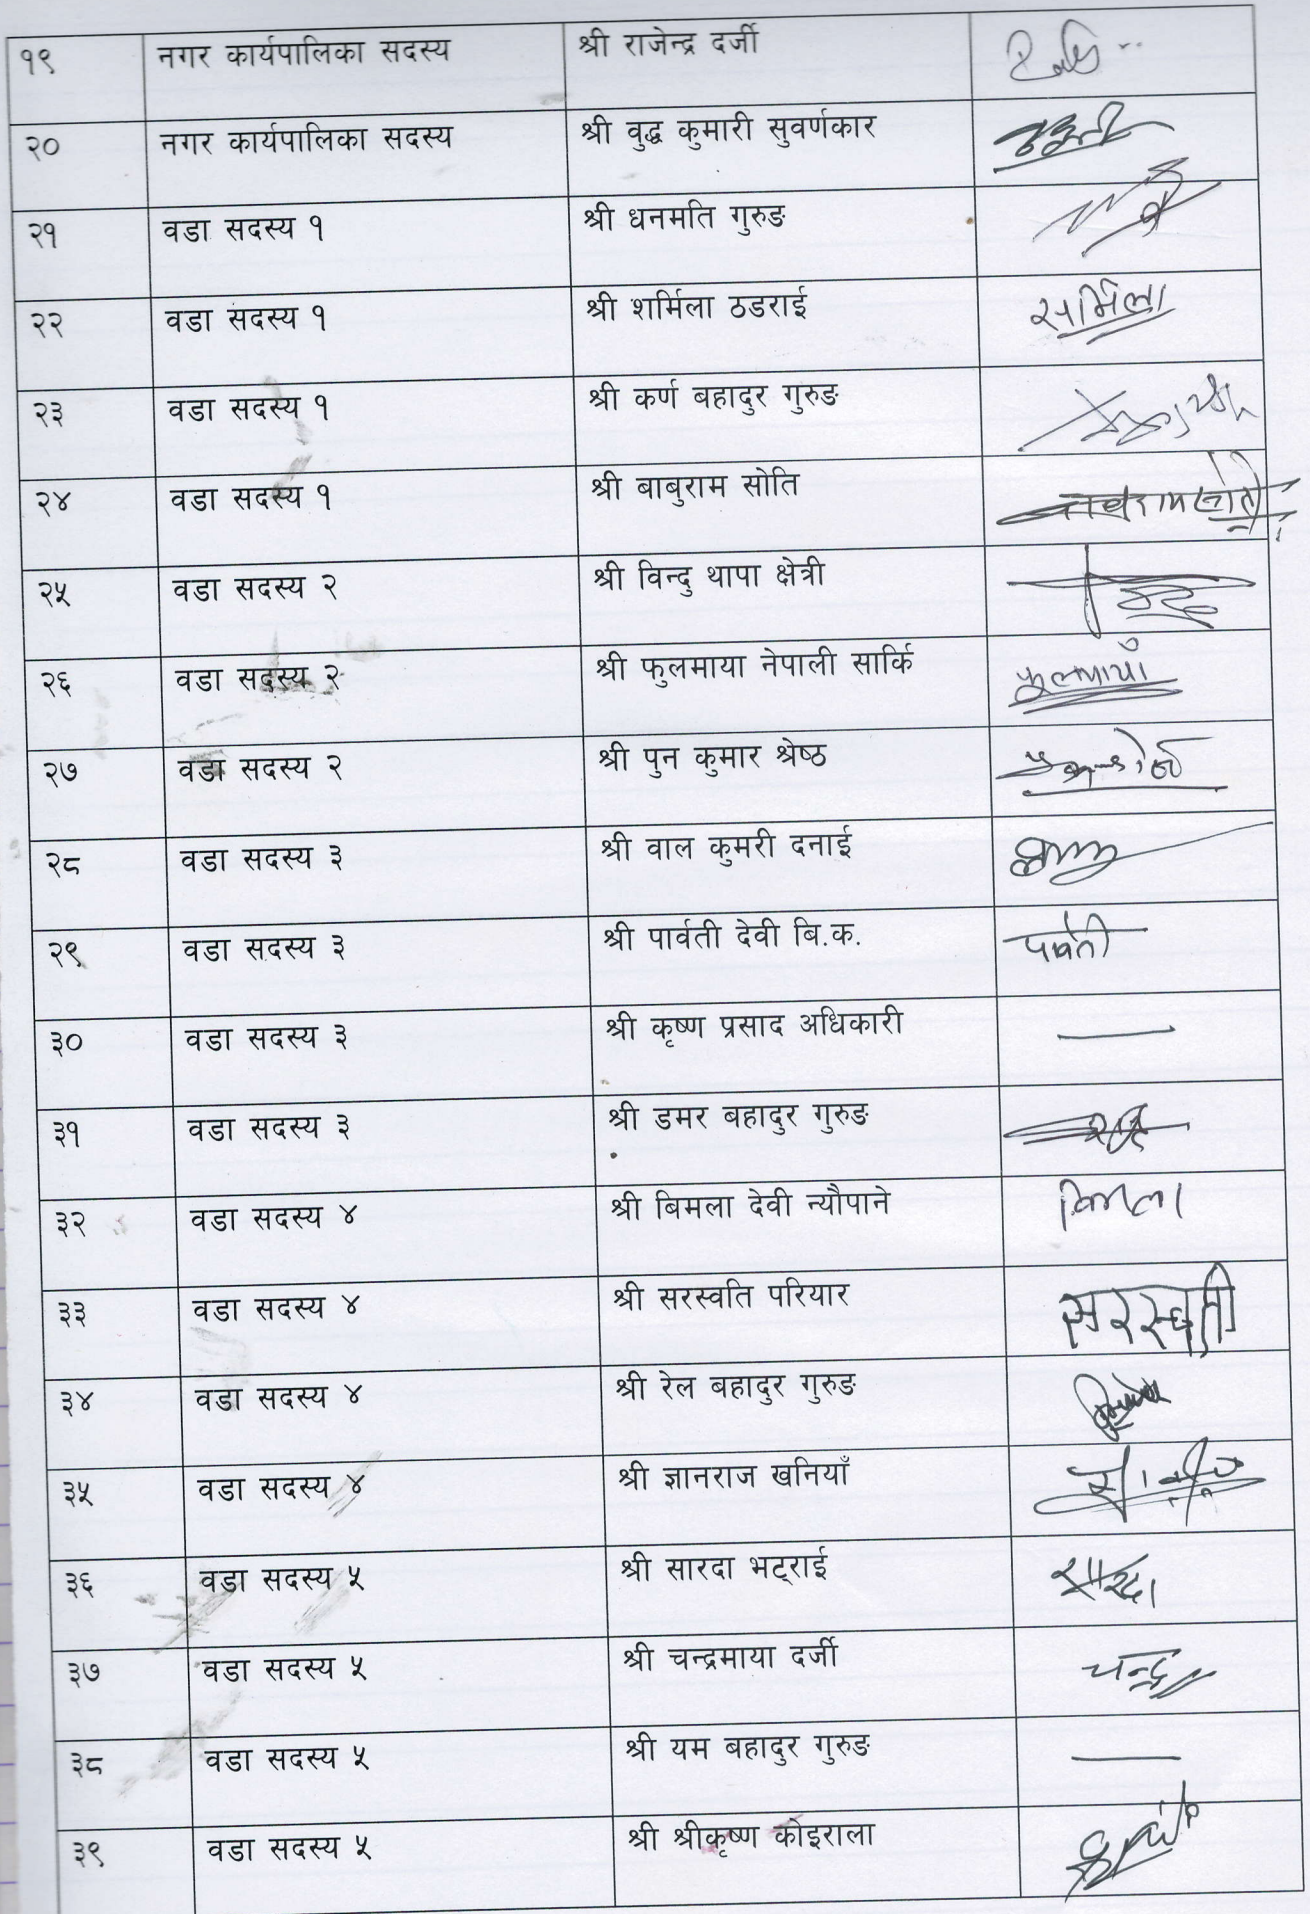 १९ नगर कार्यपालिका सदस्य श्री राजेन्द्र दर्जी
२० नगर कार्यपालिका सदस्य श्री वुद्ध कुमारी सुवर्णकार
२१ वडा सदस्य १ श्री धनमति गुरुङ
२२ वडा सदस्य १ श्री शर्मिला ठडराई सर्मिला
२३ वडा सदस्य १ श्री कर्ण बहादुर गुरुङ
२४ वडा सदस्य १ श्री बाबुराम सोति
२५ वडा सदस्य २ श्री विन्दु थापा क्षेत्री
२६ वडा सदस्य २ श्री फुलमाया नेपाली सार्कि फूलमायाँ
२७ वडा सदस्य २ श्री पुन कुमार श्रेष्ठ
२८ वडा सदस्य ३ श्री वाल कुमरी दनाई
२९ वडा सदस्य ३ श्री पार्वती देवी बि.क. पार्वती
३० वडा सदस्य ३ श्री कृष्ण प्रसाद अधिकारी —
३१ वडा सदस्य ३ श्री डमर बहादुर गुरुङ
३२ वडा सदस्य ४ श्री बिमला देवी न्यौपाने विमला
३३ वडा सदस्य ४ श्री सरस्वति परियार सरस्वती
३४ वडा सदस्य ४ श्री रेल बहादुर गुरुङ
३५ वडा सदस्य ४ श्री ज्ञानराज खनियाँ
३६ वडा सदस्य ५ श्री सारदा भट्राई सारदा
३७ वडा सदस्य ५ श्री चन्द्रमाया दर्जी चन्द्र
३८ वडा सदस्य ५ श्री यम बहादुर गुरुङ —
३९ वडा सदस्य ५ श्री श्रीकृष्ण कोइराला